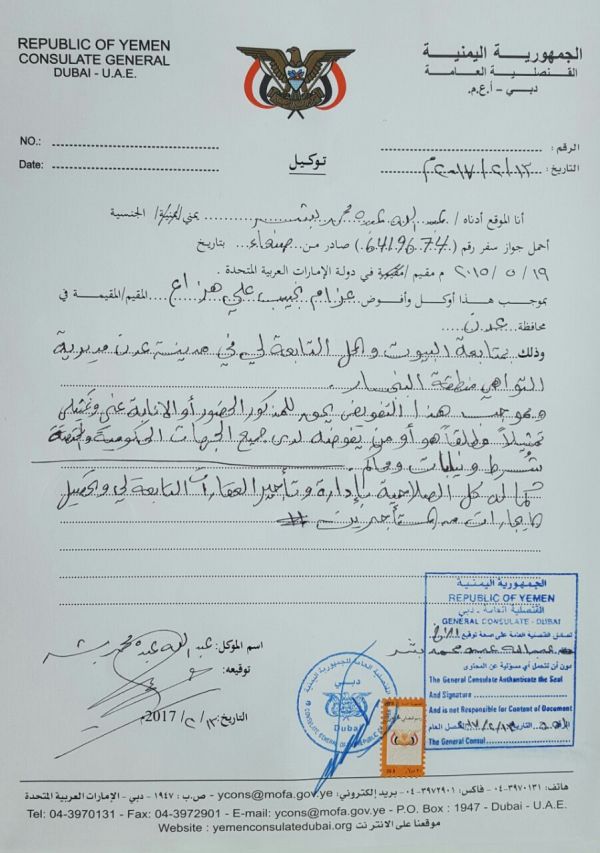 REPUBLIC OF YEMEN
CONSULATE GENERAL
DUBAI - U.A.E.
الجمهورية اليمنية
القنصلية العامة
دبي - أ.ع.م.
NO.:
Date:
توكيل
الرقم :
التاريخ : ٢٠١٧/٢/١٣م
أنا الموقع أدناه / عبدالله عبده محمد بشر يمني/يمنية/ الجنسية
أحمل جواز سفر رقم (6419674) صادر من صنعاء بتاريخ
١٩ / ٥ / ٢٠١٥ م مقيم / مقيمة في دولة الإمارات العربية المتحدة .
بموجب هذا أوكل وأفوض عزام نجيب علي هزاع المقيم/المقيمة في
محافظة عدن
وذلك بمتابعة البيوت والمحل التابعة لي في مدينة عدن مديرية
التواهي منطقة
وبموجب هذا التفويض يحق للمذكور الحضور أو الإنابة عني وتمثيلي
تمثيلاً مطلقاً هو أو من يفوضه لدى جميع الجهات الحكومية والمختصة
شرط ونيابات ومحاكم .
كما له كل الصلاحية بإدارة وتأجير العقارات التابعة لي وتحصيل
إيجارات من المستأجرين #
اسم الموكل: عبدالله عبده محمد بشر
توقيعه:
التاريخ: ١٣ / ٢ / 2017م
القنصلية العامة للجمهورية اليمنية
دبي
Dubai
الجمهورية اليمنية
REPUBLIC OF YEMEN
القنصلية العامة - دبي
GENERAL CONSULATE - DUBAI
تصادق القنصلية العامة على صحة توقيع الأخ
عبدالله عبده محمد بشر
دون أن تتحمل أي مسؤلية عن المحتوى
The General Consulate Authanticate the Seal
And Signature
And is not Responsible for Content of Document
القنصل العام التاريخ
The General Consul
هاتف: ٠٤-٣٩٧٠١٣١ - فاكس: ٠٤-٣٩٧٢٩٠١ - بريد إلكتروني: ycons@mofa.gov.ye - ص.ب : ١٩٤٧ - دبي - الإمارات العربية المتحدة
Tel: 04-3970131 - Fax: 04-3972901 - E-mail: ycons@mofa.gov.ye - P.O. Box : 1947 - Dubai - U.A.E.
Website : yemenconsulatedubai.org موقعنا على الانترنت